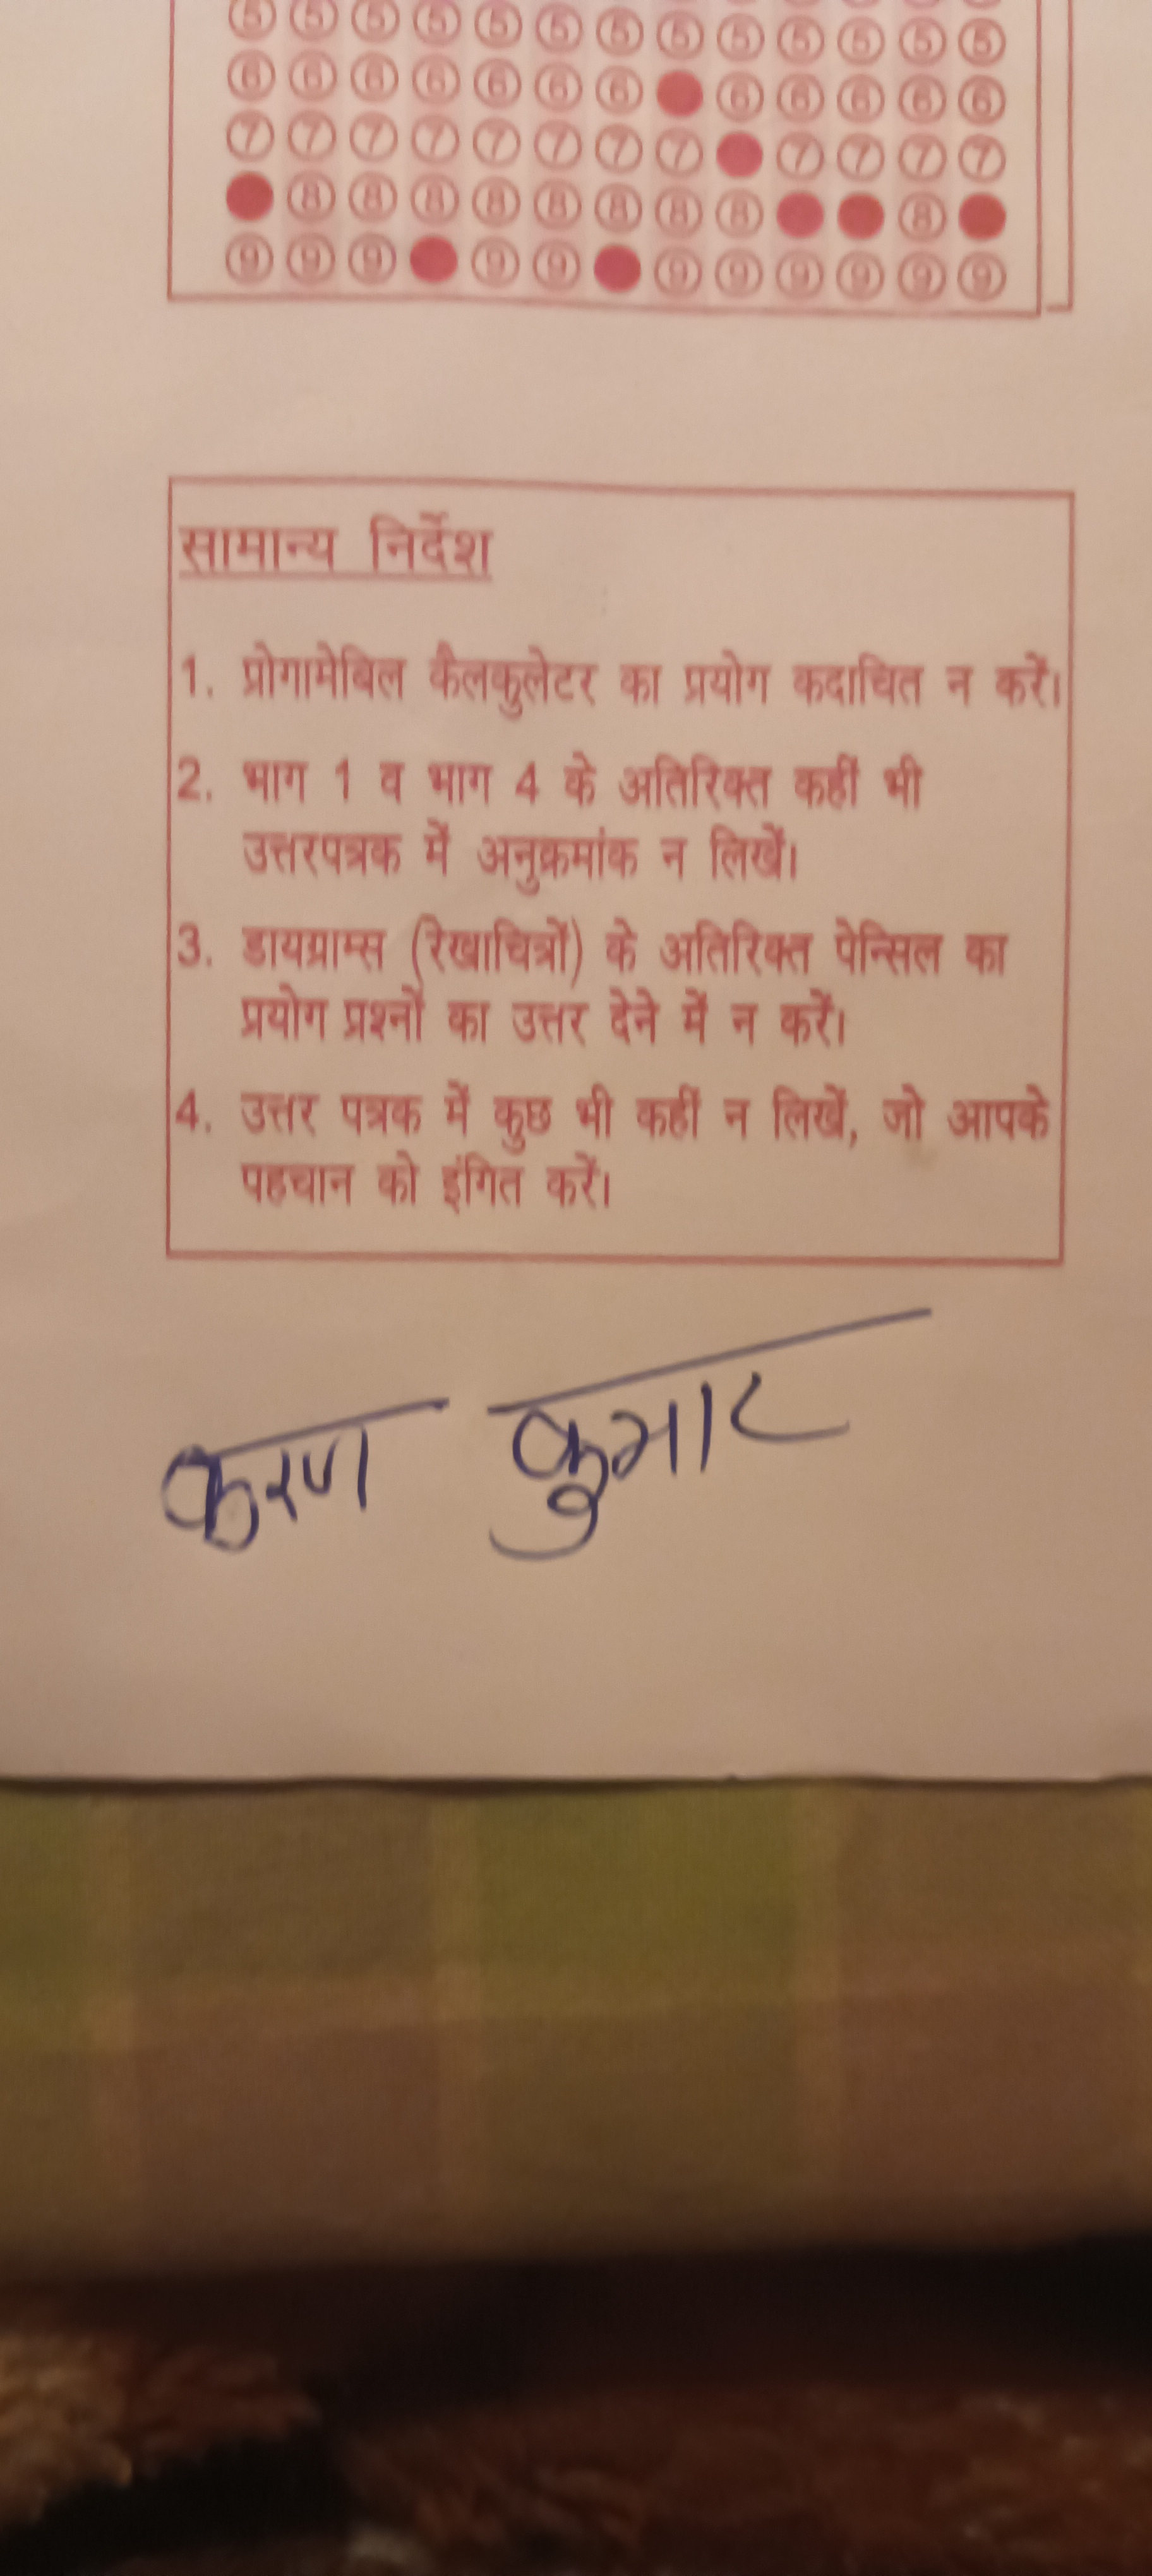 5 5 5 5 5 5 5 5 5 5 5 5 5
6 6 6 6 6 6 6 6 6 6 6 6
7 7 7 7 7 7 7 7 7 7 7 7
8 8 8 8 8 8 8 8 8
9 9 9 9 9 9 9 9 9 9 9
सामान्य निर्देश
1. प्रोगामेबिल कैलकुलेटर का प्रयोग कदाचित न करें।
2. भाग 1 व भाग 4 के अतिरिक्त कहीं भी
उत्तरपत्रक में अनुक्रमांक न लिखें।
3. डायग्राम्स (रेखाचित्रों) के अतिरिक्त पेन्सिल का
प्रयोग प्रश्नों का उत्तर देने में न करें।
4. उत्तर पत्रक में कुछ भी कहीं न लिखें, जो आपके
पहचान को इंगित करें।
करण कुमार